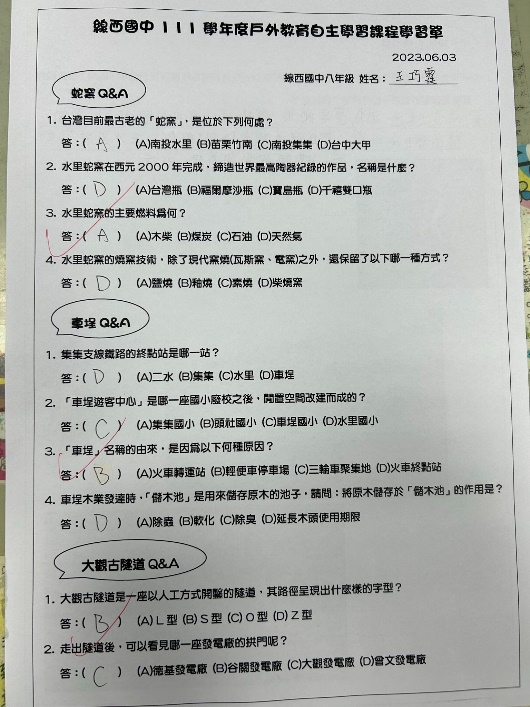 線西國中 111 學年度戶外教育自主學習課程學習單
2023.06.03
線西國中八年級 姓名：王巧霆
蛇窯 Q&A
1. 台灣目前最古老的「蛇窯」，是位於下列何處？
答：( A ) (A)南投水里 (B)苗栗竹南 (C)南投集集 (D)台中大甲
2. 水里蛇窯在西元 2000 年完成，締造世界最高陶器紀錄的作品，名稱是什麼？
答：( D ) (A)台灣瓶 (B)福爾摩沙瓶 (C)寶島瓶 (D)千禧雙口瓶
3. 水里蛇窯的主要燃料為何？
答：( A ) (A)木柴 (B)煤炭 (C)石油 (D)天然氣
4. 水里蛇窯的燒窯技術，除了現代窯燒(瓦斯窯、電窯)之外，還保留了以下哪一種方式？
答：( D ) (A)鹽燒 (B)釉燒 (C)素燒 (D)柴燒窯
車埕 Q&A
1. 集集支線鐵路的終點站是哪一站？
答：( D ) (A)二水 (B)集集 (C)水里 (D)車埕
2. 「車埕遊客中心」是哪一座國小廢校之後，閒置空間改建而成的？
答：( C ) (A)集集國小 (B)頭社國小 (C)車埕國小 (D)水里國小
3. 「車埕」名稱的由來，是因為以下何種原因？
答：( B ) (A)火車轉運站 (B)輕便車停車場 (C)三輪車聚集地 (D)火車終點站
4. 車埕木業發達時，「儲木池」是用來儲存原木的池子，請問：將原木儲存於「儲木池」的作用是？
答：( D ) (A)除蟲 (B)軟化 (C)除臭 (D)延長木頭使用期限
大觀古隧道 Q&A
1. 大觀古隧道是一座以人工方式開鑿的隧道，其路徑呈現出什麼樣的字型？
答：( B ) (A)L 型 (B)S 型 (C)O 型 (D)Z 型
2. 走出隧道後，可以看見哪一座發電廠的拱門呢？
答：( C ) (A)德基發電廠 (B)谷關發電廠 (C)大觀發電廠 (D)曾文發電廠